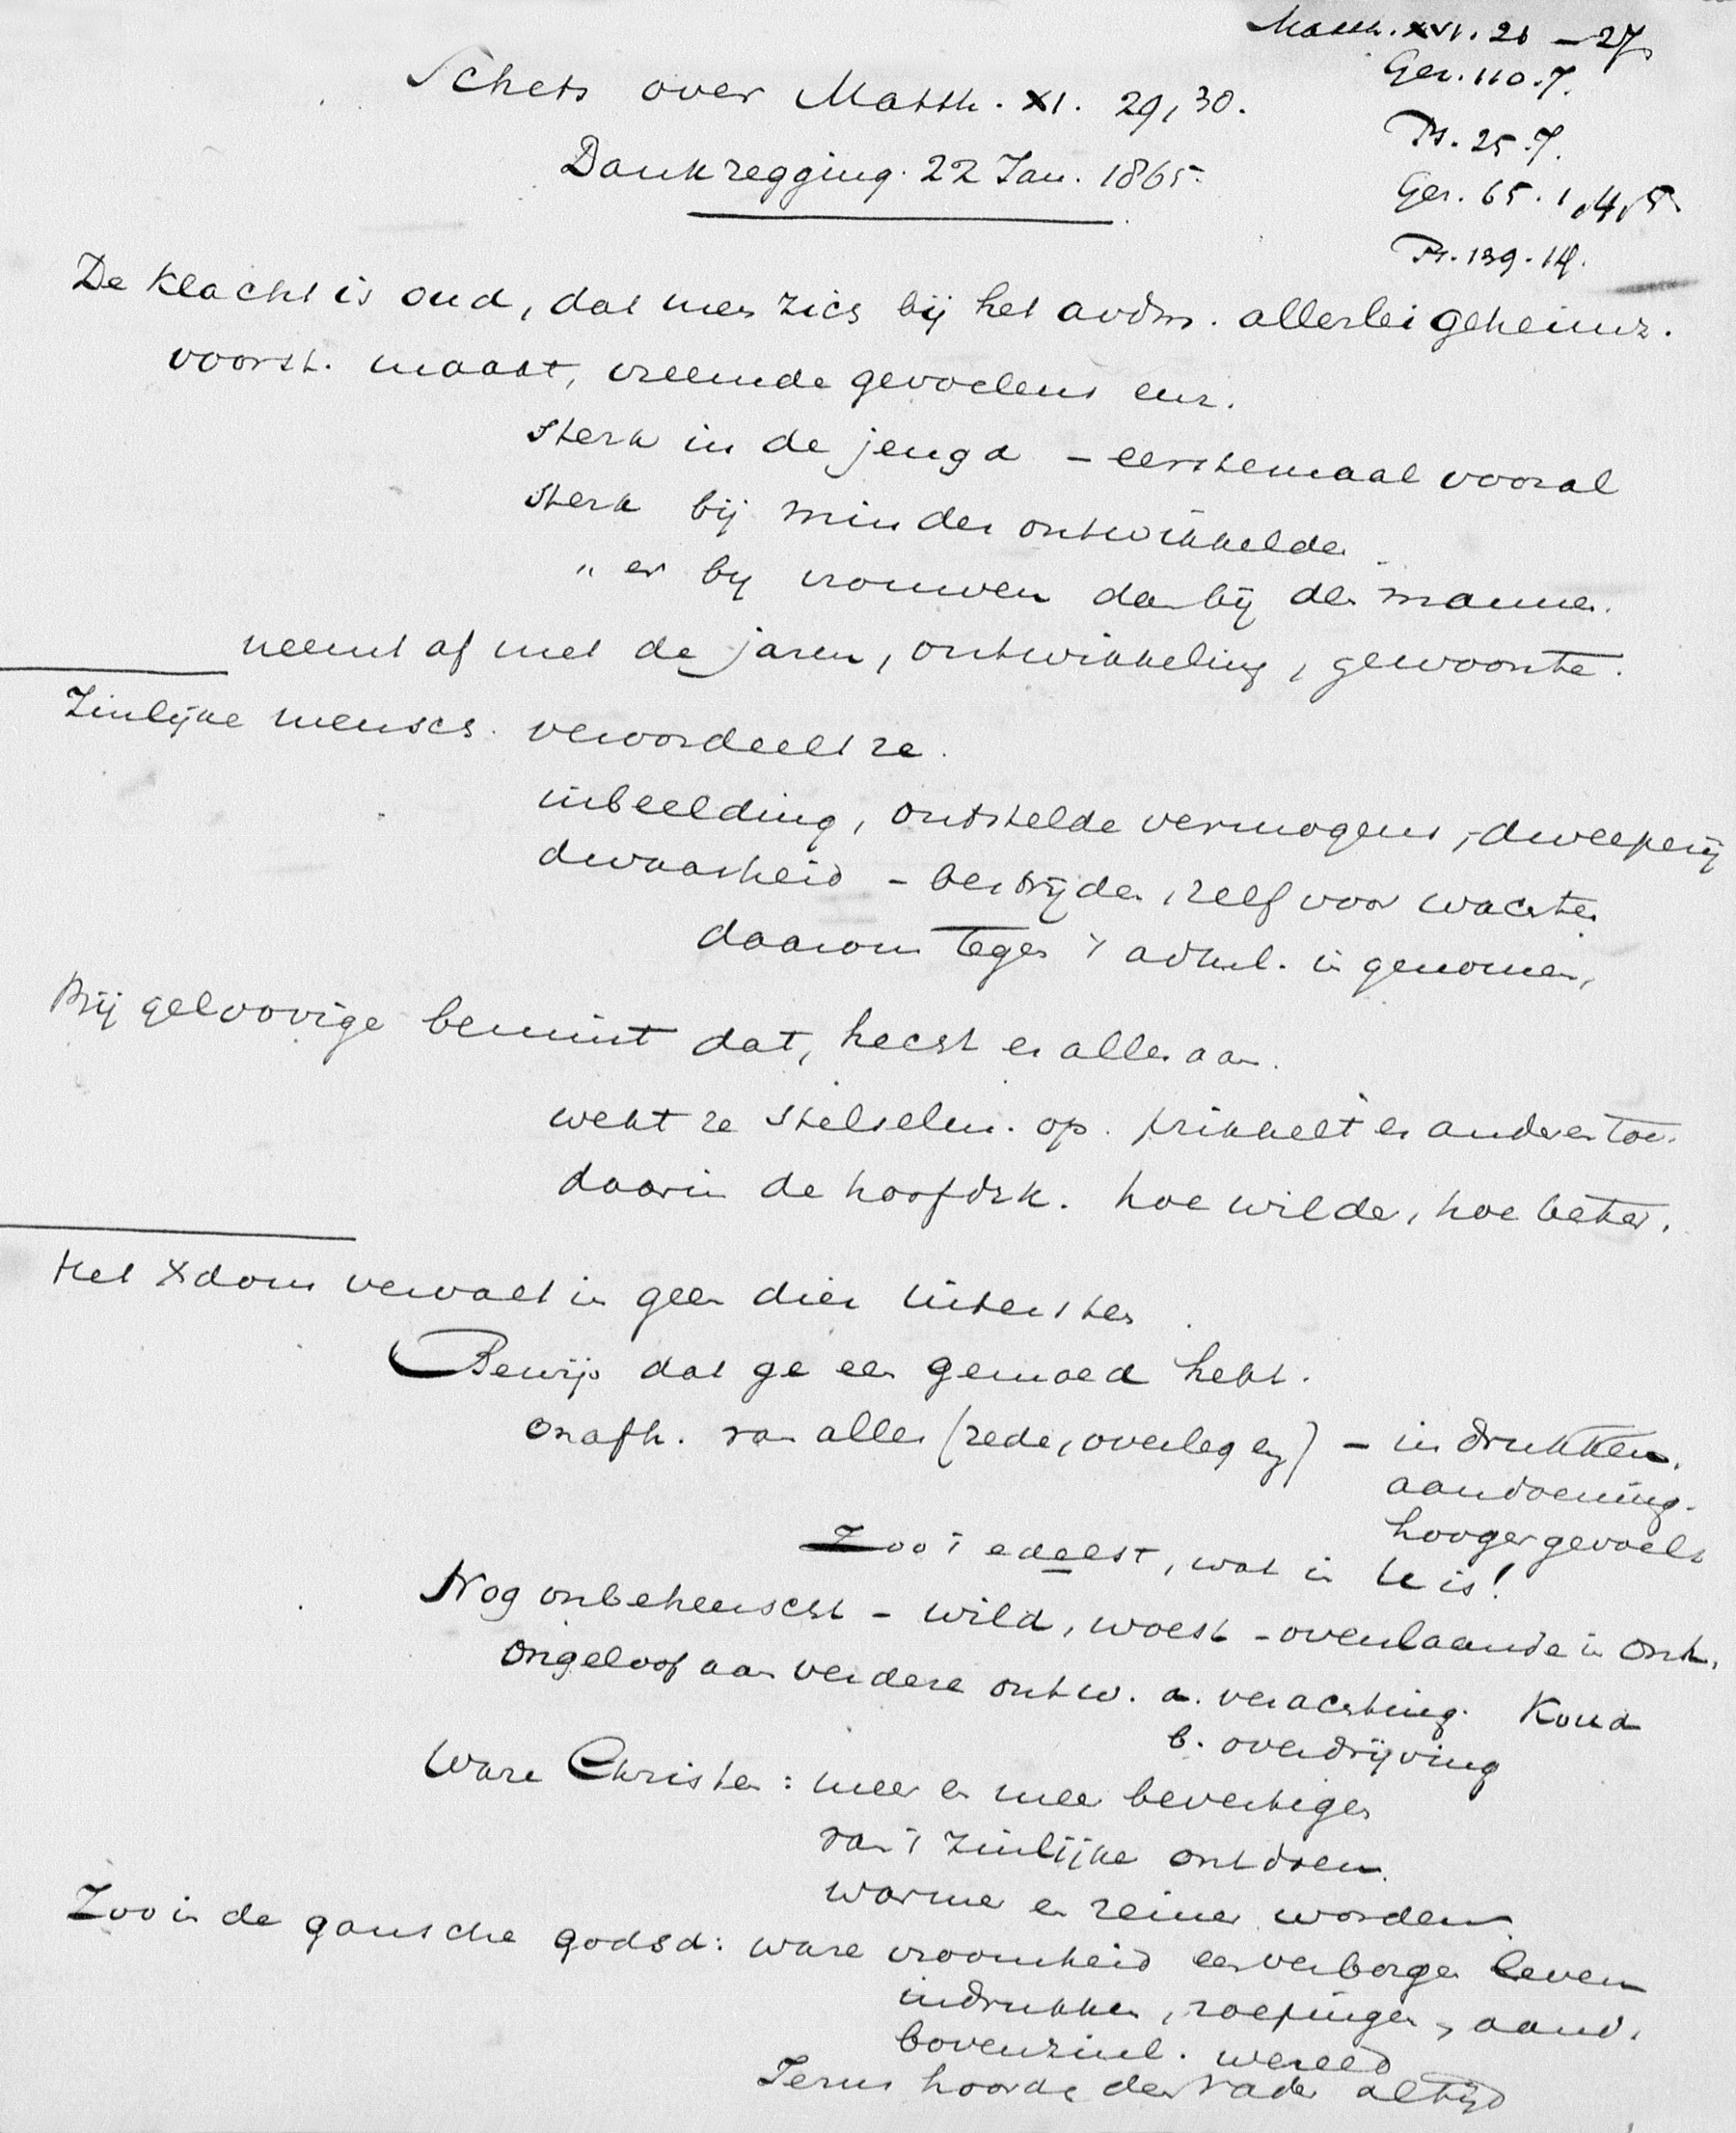 Matth. XVI. 21 – 27
Gez. 110.7.
Ps. 25.7.
Gez. 65. 1, 4, 5.
Ps. 139. 14.
Schets over Matth. XI. 29, 30.
Dankzegging. 22 Jan. 1865.
De klacht is oud, dat men zich bij het avdm. allerlei geheimz.
voorst. maakt, vreemde gevoelens enz.
sterk in de jeugd – eerstemaal vooral
sterk bij minder ontwikkelde
" er by vrouwen dan bij de mannen.
neemt af met de jaren, ontwikkeling, gewoonte.
Zinlijke mensch. veroordeelt ze.
inbeelding, ontstelde vermogens, dweeperij
dwaasheid – bestrijden, zelf voor wachten
daarom tegen 't advml. in genomen,
Bij geloovige bemint dat, hecht er alles aan.
wekt ze stelselm. op. prikkelt er anderen toe.
daarin de hoofdzk. hoe wilder, hoe beter.
Het Xdom vervalt in geen dier uitersten
Bewijs dat ge een gemoed hebt.
onafh. van alles (rede, overleg enz) – indrukken.
aandoening.
hooger gevoels
Zoo 't edelst, wat in U is!
Nog onbeheerscht – wild, woest – overlaande in ont.
Ongeloof aan verdere ontw. a. verachting. Koud
b. overdrijving
Ware Christen: meer en meer bevestigen
van 't zinlijke ontdoen.
warmer en reiner worden
Zoo in de gansche godsd: ware vroomheid een verborgen leven
indrukken, roepingen, aand.
bovenzinl. wereld
Jezus hoorde den Vader altijd